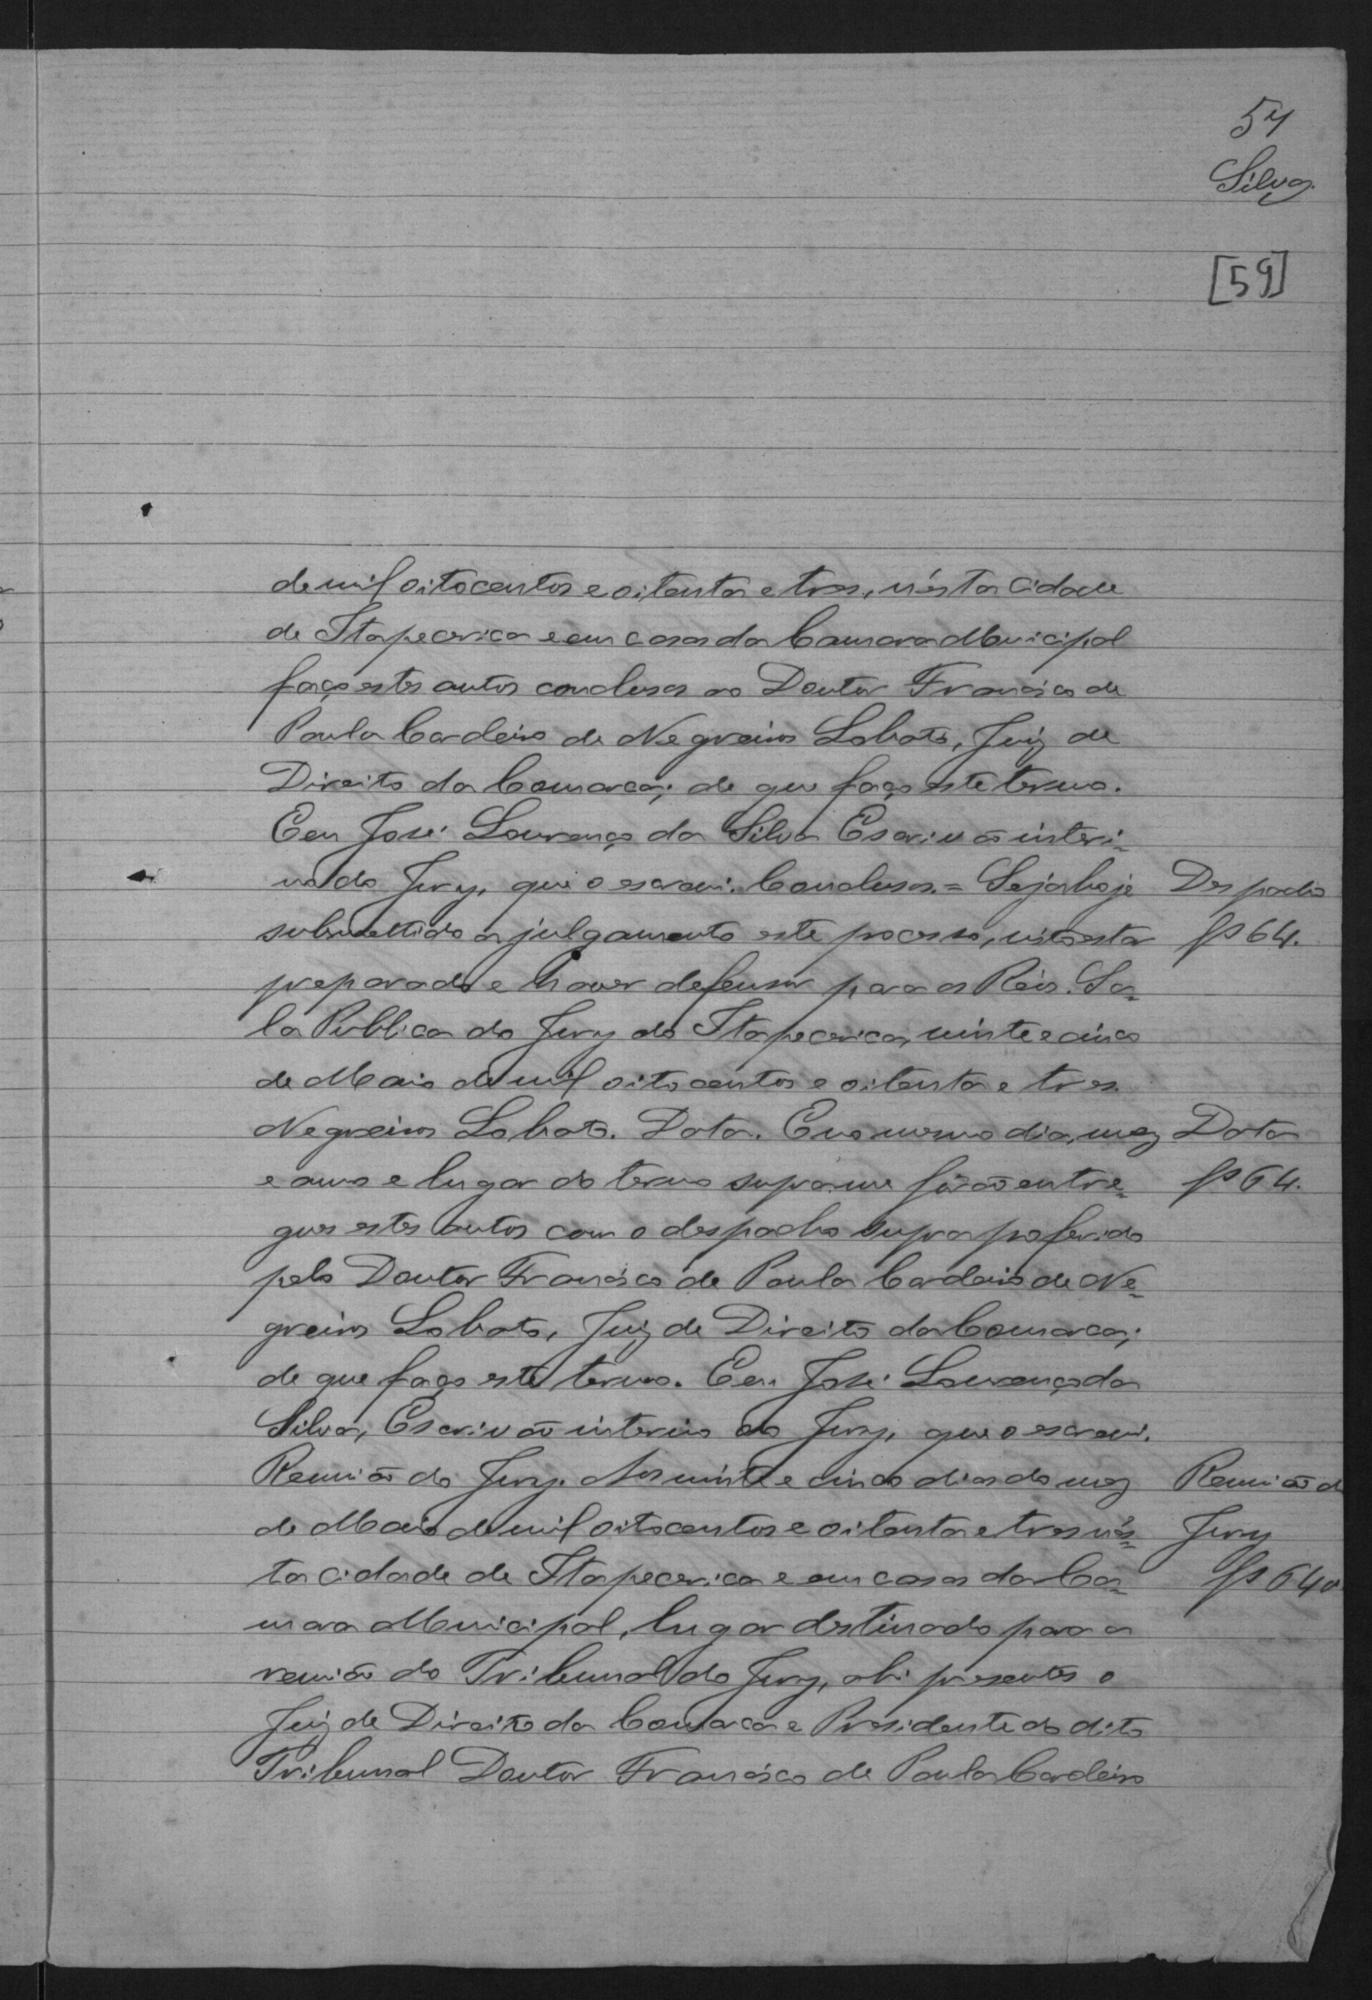 57
Silva
[59]
de mil oitocentos e oitenta e tres, nésta cidade
de Itapecerica e em casas da Camara Municipal
faço estes autos conclusos ao Doutor Francisco de
Paula Cordeiro de Negreiros Lobato, Juiz de
Direito da Comarca; de que faço este termo.
Eeu José Lourenço da Silva Escrivão interi=
no do Jury, que o escrevi. Conclusos. = Seja hoje
Despacho
submettido a julgamento este processo, visto estar
fs 64.
preparado e haver defensor para os Réos. Sa=
la Publica do Jury do Itapecerica, vinte e cinco
de Maio de mil oitocentos e oitenta e tres.
Negreiros Lobato. Data. E no mesmo dia, mez
Data
e anno e lugar do termo supra me forão entre=
fs 64.
gues estes autos com o despacho supra proferido
pelo Doutor Francisco de Paula Cordeiro de Ne=
greiros Lobato, Juiz de Direito da Comarca;
de que faço este termo. Eeu José Lourenço da
Silva, Escrivão interino do Jury, que o escrevi.
Reunião do Jury. Aos vinte e cinco dias do mez
Reunião do
de Maio de mil oitocentos e oitenta e tres nés=
Jury
ta cidade de Itapecerica e em casas da Ca=
fs 64v
mara Municipal, lugar destinado para a
reunião do Tribunal do Jury, ahi presentes o
Juiz de Direito da Comarca e Presidente do dito
Tribunal Doutor Francisco de Paula Cordeiro